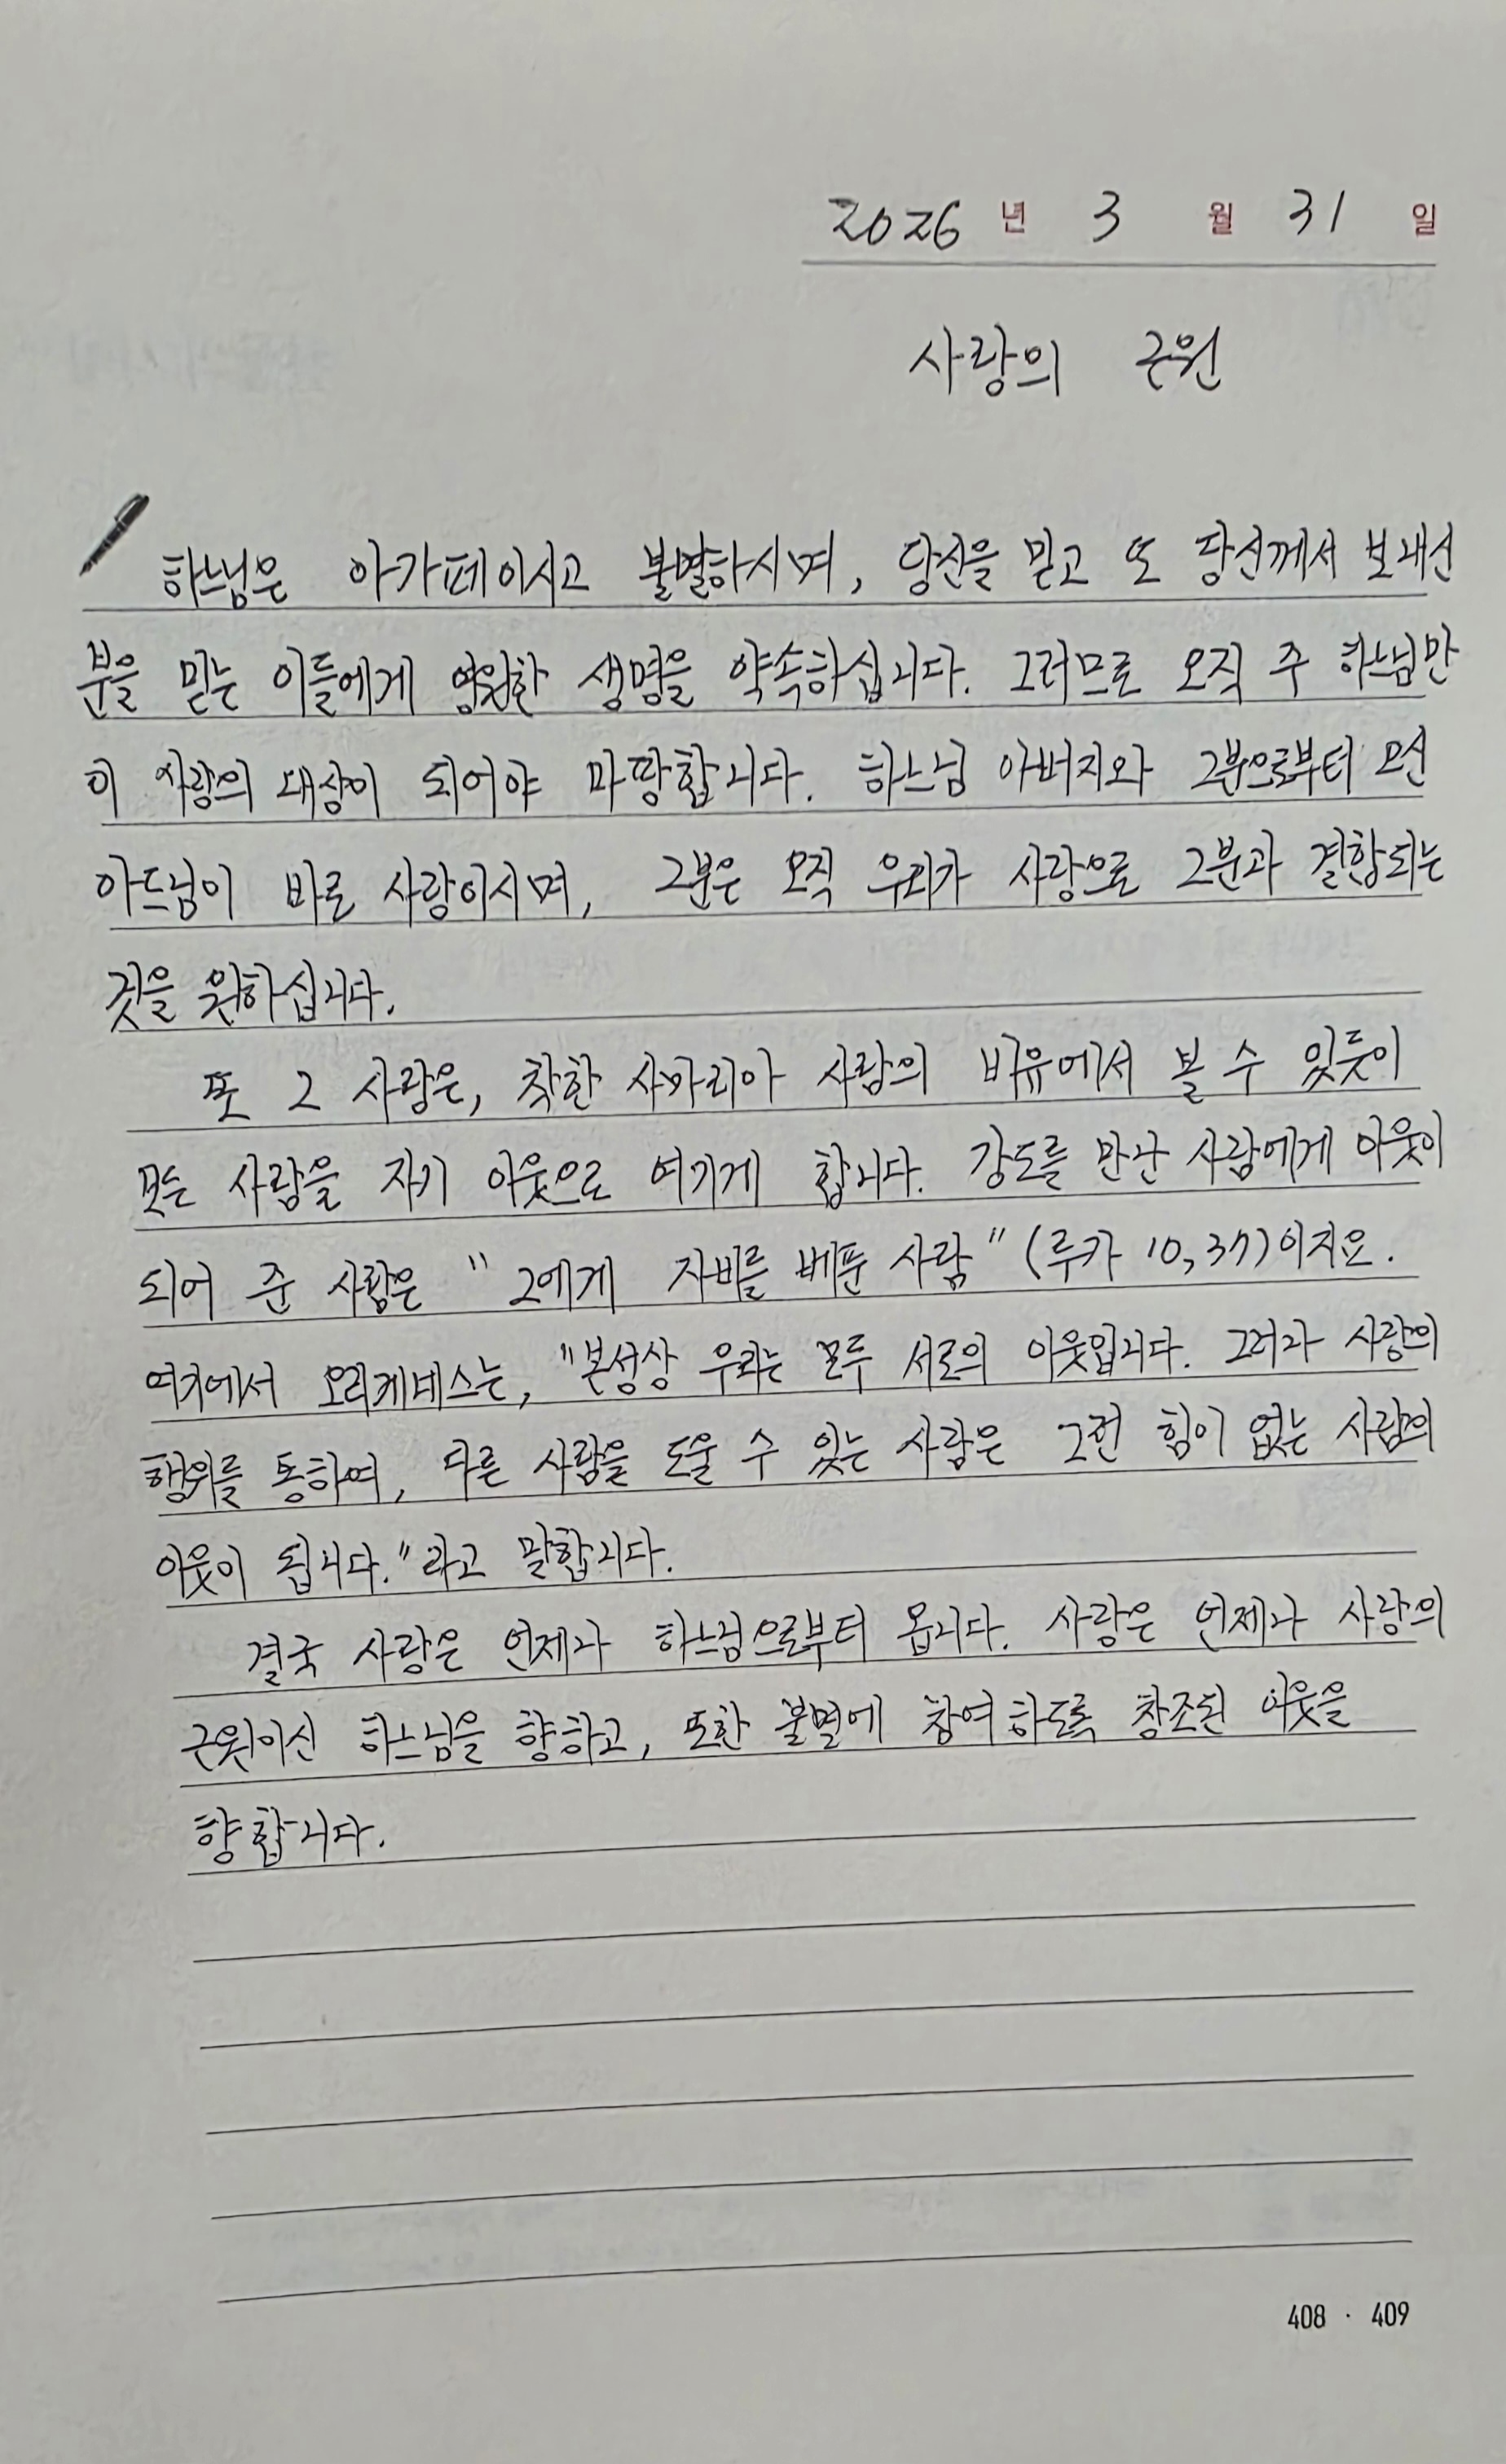 2026 년 3 월 31 일
사랑의 근원
하느님은 아가페이시고 불멸하시며, 당신을 믿고 또 당신께서 보내신
분을 믿는 이들에게 영원한 생명을 약속하십니다. 그러므로 오직 주 하느님만
이 사랑의 대상이 되어야 마땅합니다. 하느님 아버지와 그분으로부터 오신
아드님이 바로 사랑이시며, 그분은 오직 우리가 사랑으로 그분과 결합되는
것을 원하십니다.
또 그 사랑은, 착한 사마리아 사람의 비유에서 볼 수 있듯이
모든 사람을 자기 이웃으로 여기게 합니다. 강도를 만난 사람에게 이웃이
되어 준 사람은 "그에게 자비를 베푼 사람" (루카 10,37)이지요.
여기에서 오리게네스는, "본성상 우리는 모두 서로의 이웃입니다. 그러나 사랑의
행위를 통하여, 다른 사람을 도울 수 있는 사람은 그런 힘이 없는 사람의
이웃이 됩니다."라고 말합니다.
결국 사랑은 언제나 하느님으로부터 옵니다. 사랑은 언제나 사랑의
근원이신 하느님을 향하고, 또한 불멸에 참여하도록 창조된 이웃을
향합니다.
408 · 409